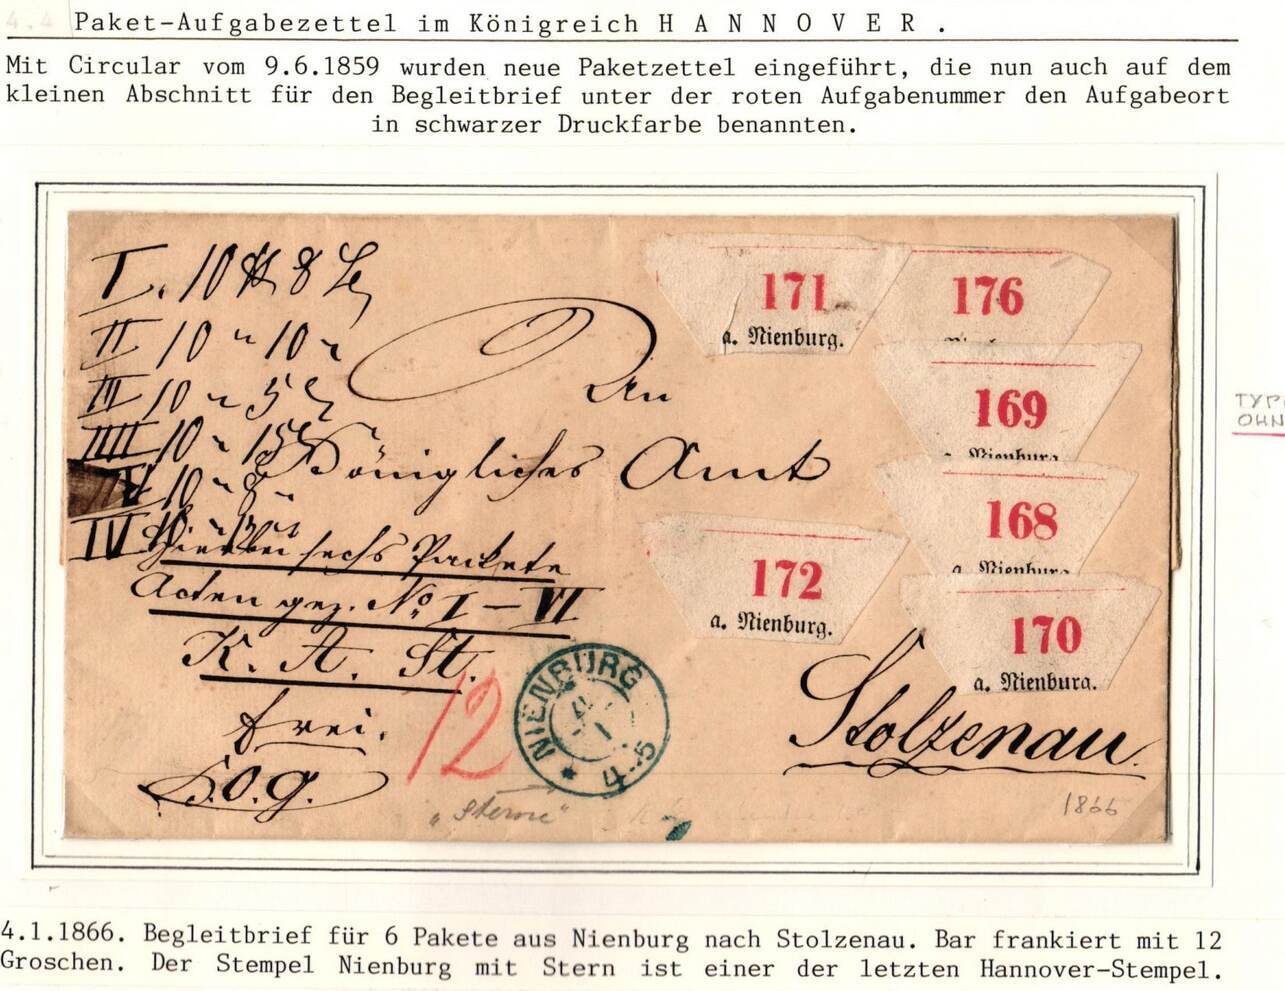 4.4 Paket-Aufgabezettel im Königreich H A N N O V E R .
Mit Circular vom 9.6.1859 wurden neue Paketzettel eingeführt, die nun auch auf dem
kleinen Abschnitt für den Begleitbrief unter der roten Aufgabenummer den Aufgabeort
in schwarzer Druckfarbe benannten.
I. 10 8
II 10 " 10 "
III 10 " 5
IIII 10 "
V 10 " 8 "
IV
An
Königliches Amt
Hierbei sechs Packete
Acten gez. No I - VI
K. A. St.
frei.
12
NIENBURG
4 1
4-5
Stolzenau.
171
a. Nienburg.
176
169
a. Nienburg.
168
a. Nienburg.
172
a. Nienburg.
170
a. Nienburg.
"Sterne"
1866
TYP
OHN
4.1.1866. Begleitbrief für 6 Pakete aus Nienburg nach Stolzenau. Bar frankiert mit 12
Groschen. Der Stempel Nienburg mit Stern ist einer der letzten Hannover-Stempel.